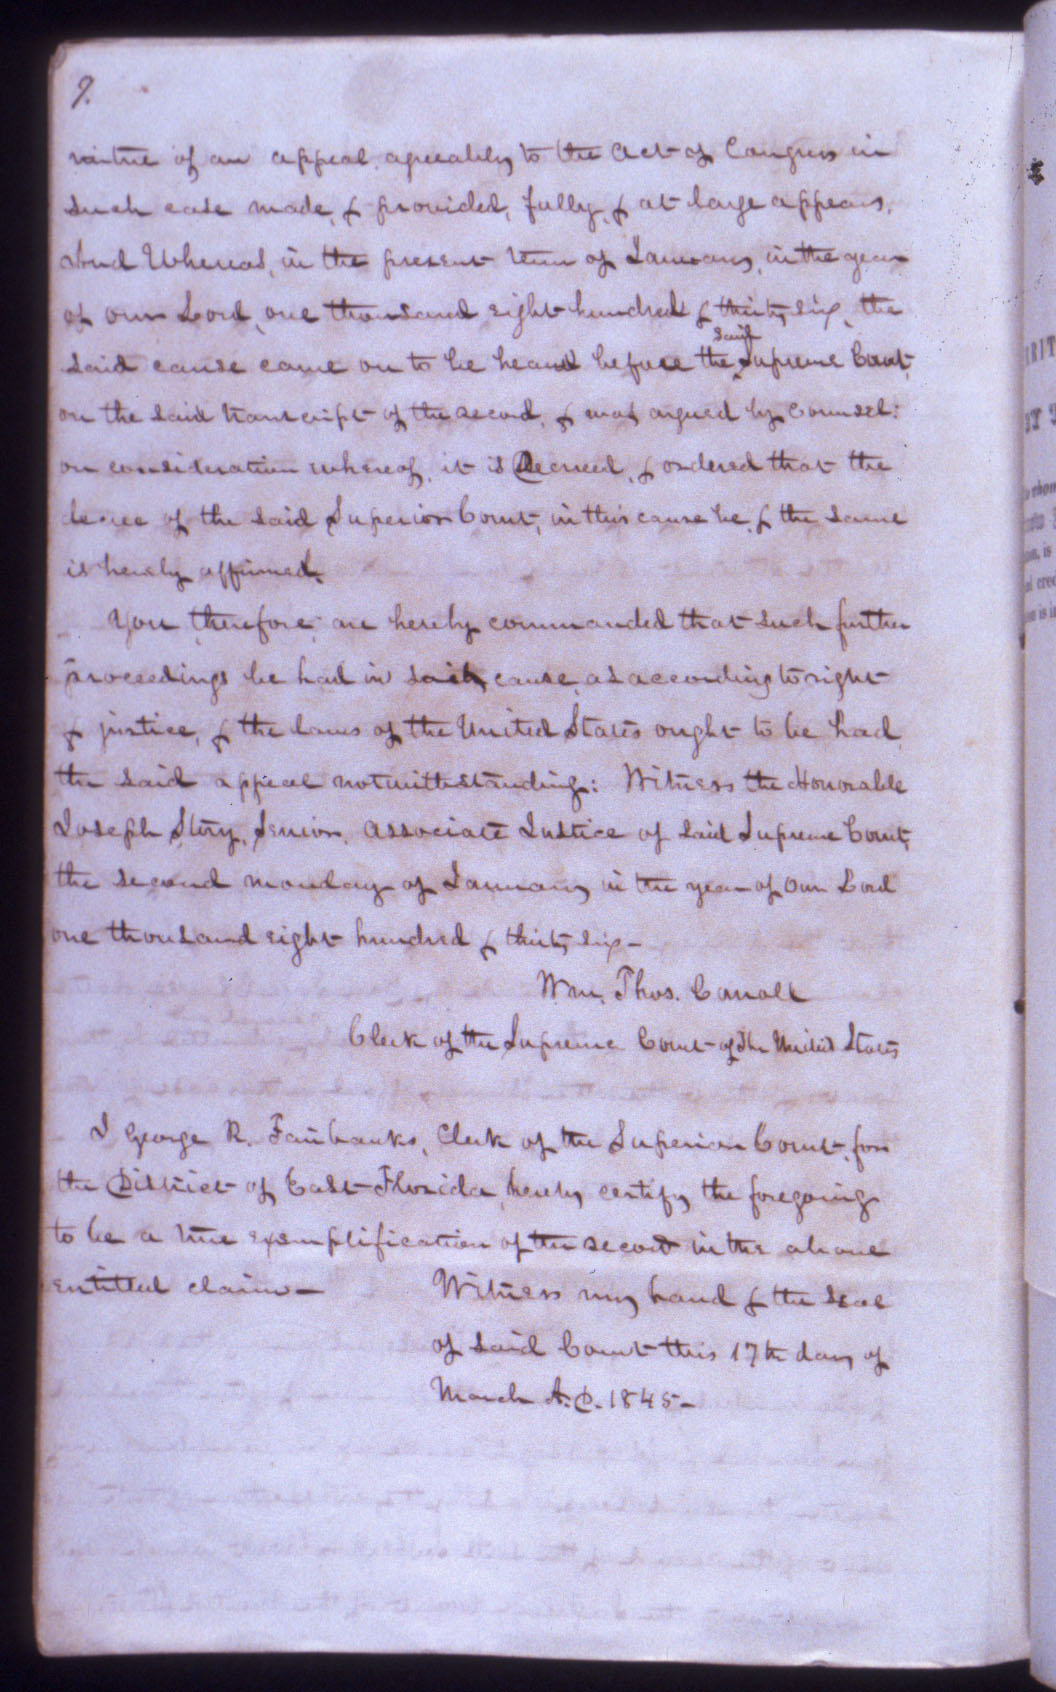 9.
virtue of an appeal, agreeably to the Act of Congress in
such case made, & provided, fully, & at large appears,
And Whereas, in the present term of January, in the year
of our Lord, one thousand eight hundred & thirty six, the
said cause came on to be heard before the said Supreme Court,
on the said transcript of the record, & was argued by counsel:
on consideration whereof, it is Decreed, & ordered that the
decree of the said Superior Court, in this cause be, & the same
is hereby affirmed.
You therefore are hereby commanded that such further
proceedings be had in said cause, as according to right
& justice, & the laws of the United States ought to be had,
the said appeal notwithstanding: Witness the Honorable
Joseph Story, Senior, Associate Justice of said Supreme Court,
the second monday of January in the year of our Lord
one thousand eight hundred & thirty six –
Wm. Thos. Carroll
Clerk of the Supreme Court of The United States
I George R. Fairbanks, Clerk of the Superior Court, for
the District of East Florida, hereby certify the foregoing
to be a true exemplification of the record in the above
entitled claim –
Witness my hand & the seal
of said Court this 17th day of
March A.D. 1845 –